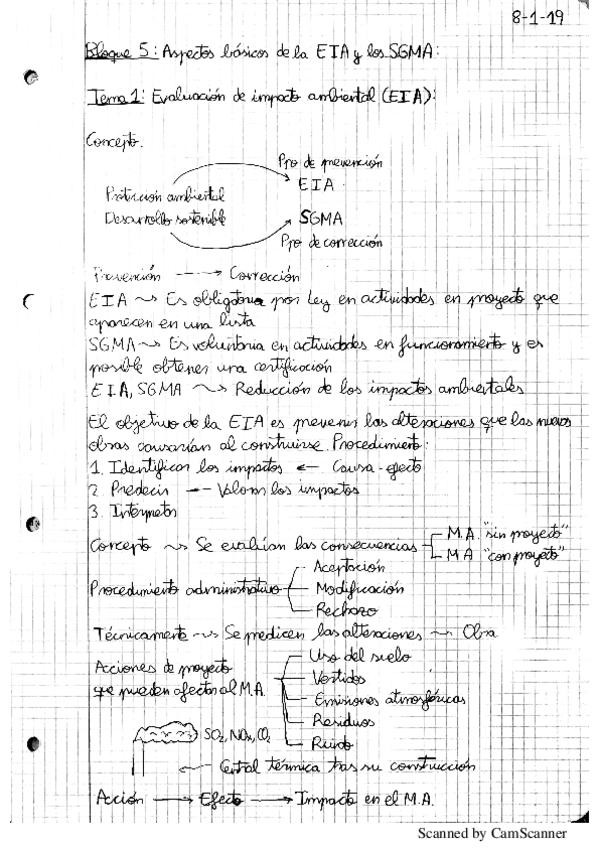 8-1-19
Bloque 5: Aspectos básicos de la EIA y los SGMA:
Tema 1: Evaluación de impacto ambiental (EIA):
Concepto.
Pro de prevención
EIA
Protección ambiental
Desarrollo sostenible
SGMA
Pro de corrección
Prevención → Corrección
EIA ~> Es obligatoria por Ley en actividades en proyecto que
aparecen en una lista
SGMA ~> Es voluntaria en actividades en funcionamiento y es
posible obtener una certificación
EIA, SGMA ~> Reducción de los impactos ambientales
El objetivo de la EIA es prevenir las alteraciones que las nuevas
obras causarían al construirse. Procedimiento:
1. Identificar los impactos ← Causa-efecto
2. Predecir -- Valorar los impactos
3. Interpretar
Concepto ~> Se evalúan las consecuencias
M.A. "sin proyecto"
M.A "con proyecto"
Procedimiento administrativo
Aceptación
Modificación
Rechazo
Técnicamente ~> Se predicen las alteraciones ~> Obra
Acciones de proyecto
que pueden afectar al M.A.
Uso del suelo
Vertidos
Emisiones atmosféricas
Residuos
Ruido
SO2, NOx, CO2
Central térmica tras su construcción
Acción → Efecto → Impacto en el M.A.
Scanned by CamScanner